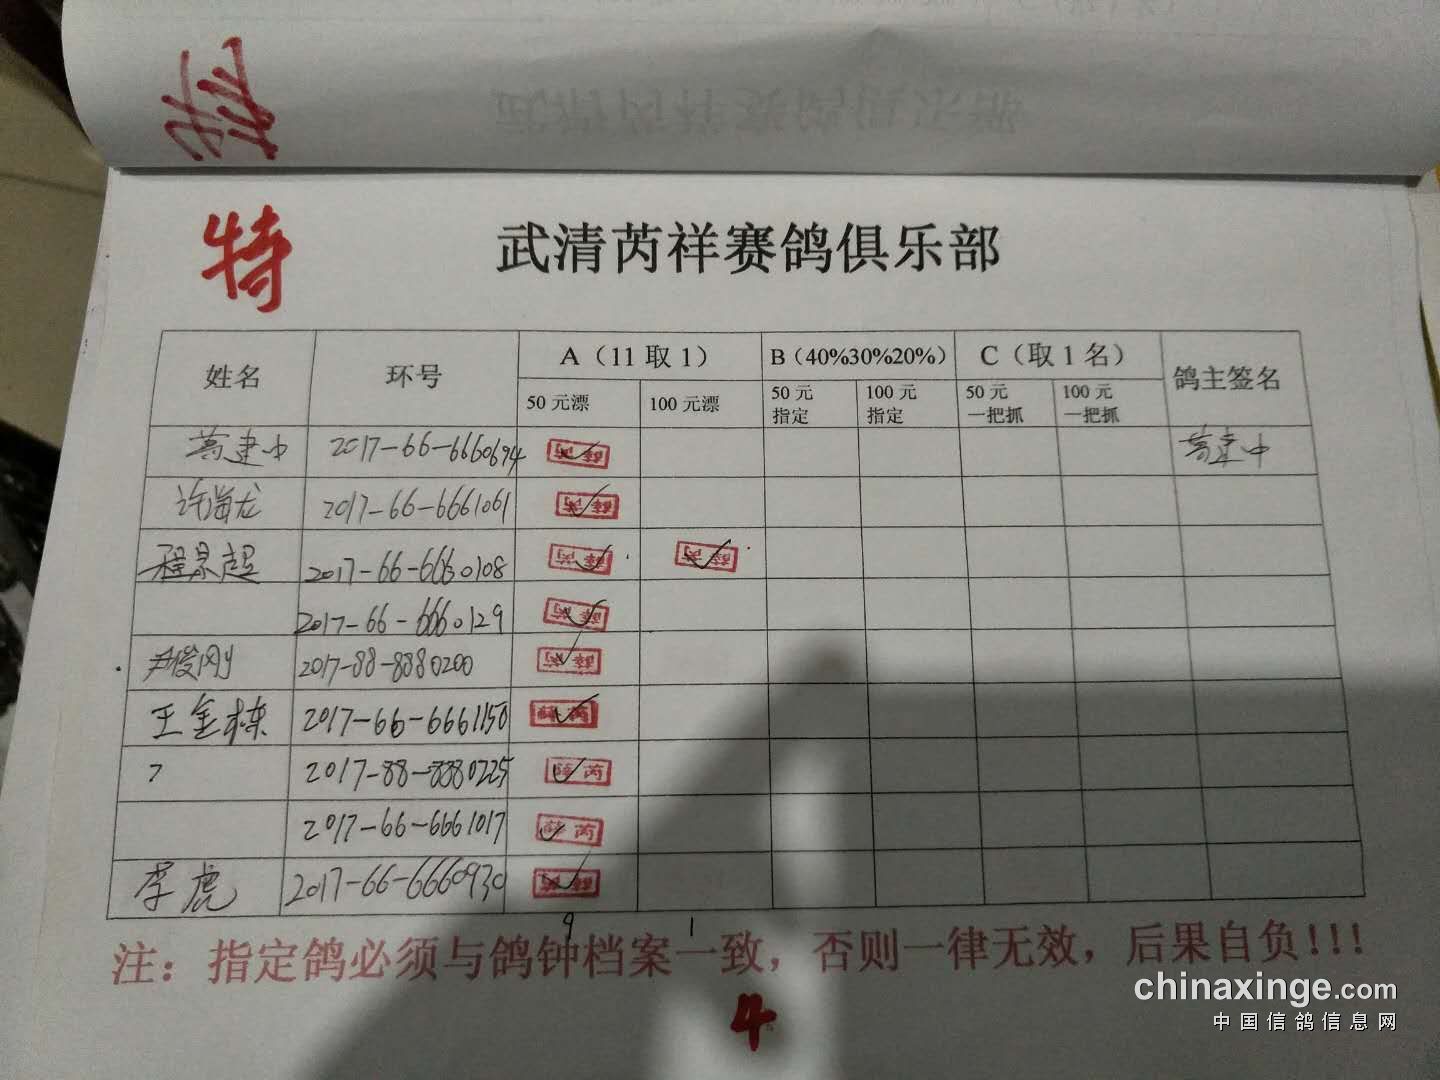 特
武清芮祥赛鸽俱乐部
姓名 环号 A（11 取 1） B（40%30%20%） C（取 1 名） 鸽主签名
50 元漂 100 元漂 50 元指定 100 元指定 50 元一把抓 100 元一把抓
蒿建中 2017-66-6660694 蒿建中
许海龙 2017-66-6661061
程景超 2017-66-6660108
2017-66-6660129
尹俊刚 2017-88-8880200
王金栋 2017-66-6661150
2017-88-8880225
2017-66-6661017
李虎 2017-66-6660930
9 1
注：指定鸽必须与鸽钟档案一致，否则一律无效，后果自负!!!
4
chinaxinge.com
中国信鸽信息网